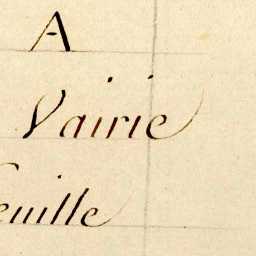 A
Vairie
euille